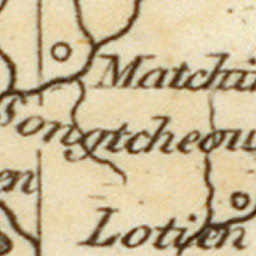 Matchin
Tongtcheou
en
Lotien